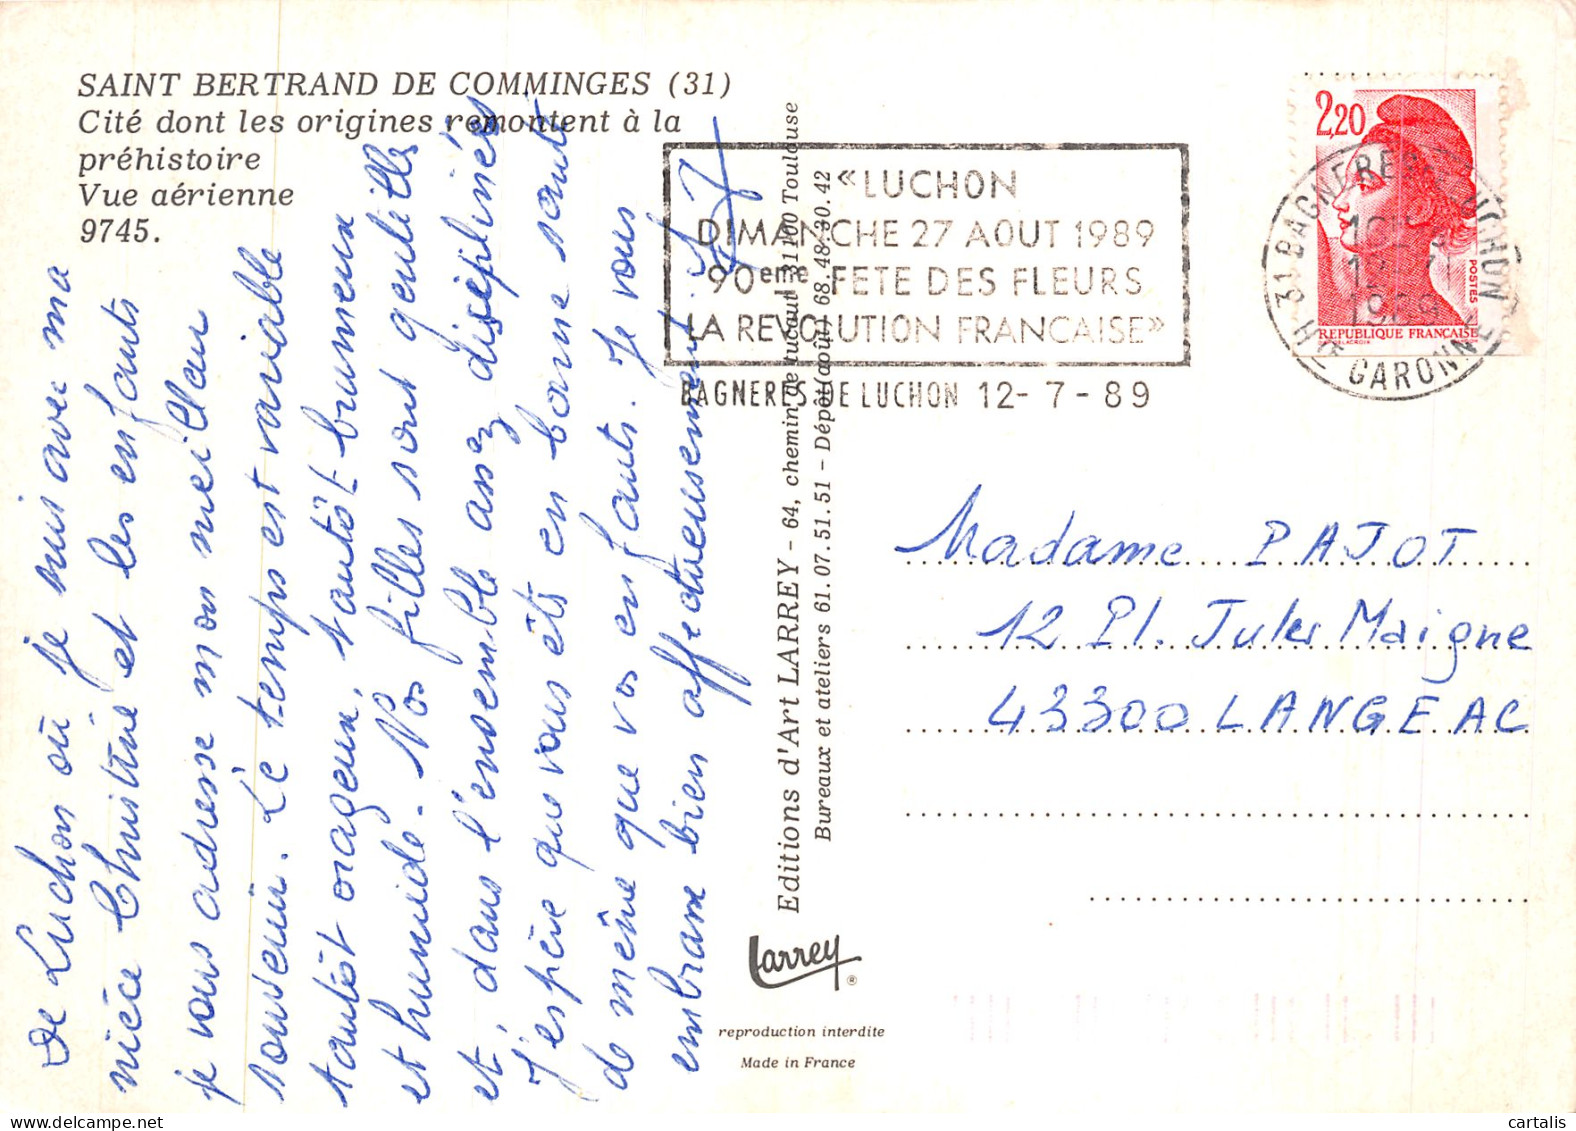 SAINT BERTRAND DE COMMINGES (31)
Cité dont les origines remontent à la
préhistoire
Vue aérienne
9745.
De Luchon où je suis avec ma
nièce Christine et les enfants
je vous adresse mon meilleur
souvenir. Le temps est variable
tantôt orageux, tantôt brumeux
et humide. Nos filles sont gentilles
et, dans l'ensemble assez disciplinées
J'espère que vous êts en bonne santé
de même que vos enfants. Je vous
embrasse bien affectueusement.
Editions d'Art LARREY - 64, chemin de Tucaut 31100 Toulouse
Bureaux et ateliers 61.07.51.51 - Dépôt (août) 68.48.30.42
Larrey ®
reproduction interdite
Made in France
«LUCHON
DIMANCHE 27 AOUT 1989
90eme FETE DES FLEURS
LA REVOLUTION FRANCAISE»
BAGNERES DE LUCHON 12- 7 - 89
2,20
POSTES
REPUBLIQUE FRANÇAISE
31 BAGNERES DE LUCHON
1989
Hte GARONNE
Madame PAJOT
12 Pl. Jules Maigne
43300 LANGEAC
cartalis